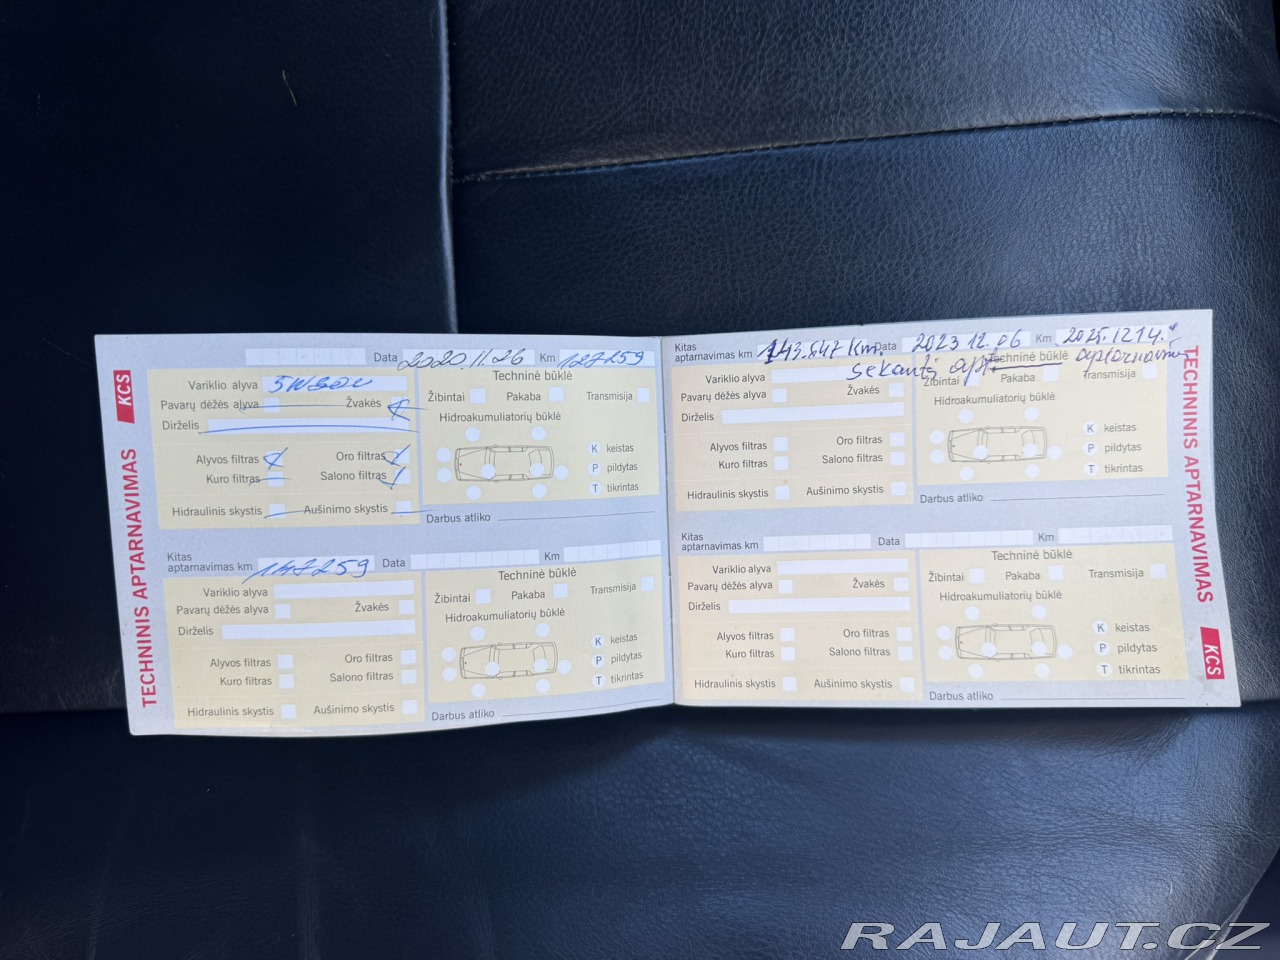 Data 2020.11.26 Km 127259
KCS
TECHNINIS APTARNAVIMAS
Variklio alyva 5W30
Pavarų dėžės alyva Žvakės
Dirželis
Alyvos filtras Oro filtras
Kuro filtras Salono filtras
Hidraulinis skystis Aušinimo skystis
Techninė būklė
Žibintai Pakaba Transmisija
Hidroakumuliatorių būklė
K keistas
P pildytas
T tikrintas
Darbus atliko
Kitas
aptarnavimas km 147259 Data Km
Variklio alyva
Pavarų dėžės alyva Žvakės
Dirželis
Alyvos filtras Oro filtras
Kuro filtras Salono filtras
Hidraulinis skystis Aušinimo skystis
Techninė būklė
Žibintai Pakaba Transmisija
Hidroakumuliatorių būklė
K keistas
P pildytas
T tikrintas
Darbus atliko
Kitas
aptarnavimas km 143.847 Km. Data 2023 12.06 Km 2025.12 14.
Variklio alyva
Pavarų dėžės alyva Žvakės
Dirželis
Alyvos filtras Oro filtras
Kuro filtras Salono filtras
Hidraulinis skystis Aušinimo skystis
Techninė būklė
Žibintai Pakaba Transmisija
Hidroakumuliatorių būklė
K keistas
P pildytas
T tikrintas
Darbus atliko
Kitas
aptarnavimas km Data Km
Variklio alyva
Pavarų dėžės alyva Žvakės
Dirželis
Alyvos filtras Oro filtras
Kuro filtras Salono filtras
Hidraulinis skystis Aušinimo skystis
Techninė būklė
Žibintai Pakaba Transmisija
Hidroakumuliatorių būklė
K keistas
P pildytas
T tikrintas
Darbus atliko
TECHNINIS APTARNAVIMAS
KCS
RAJAUT.CZ